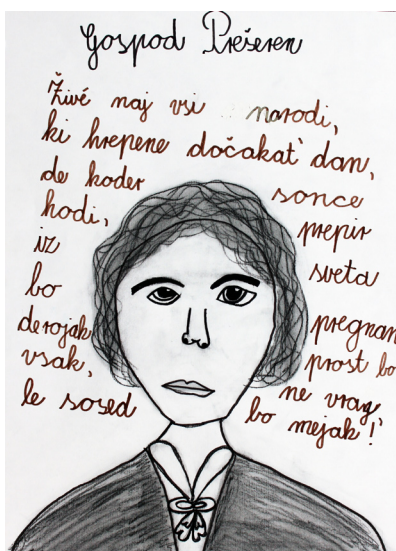 Gospod Prešeren
Živé naj vsi narodi,
ki hrepene dočakat' dan,
de koder sonce
hodi, prepir
iz sveta
bo pregnan
de rojak prost bo
vsak, ne vrag,
le sosed bo mejak!